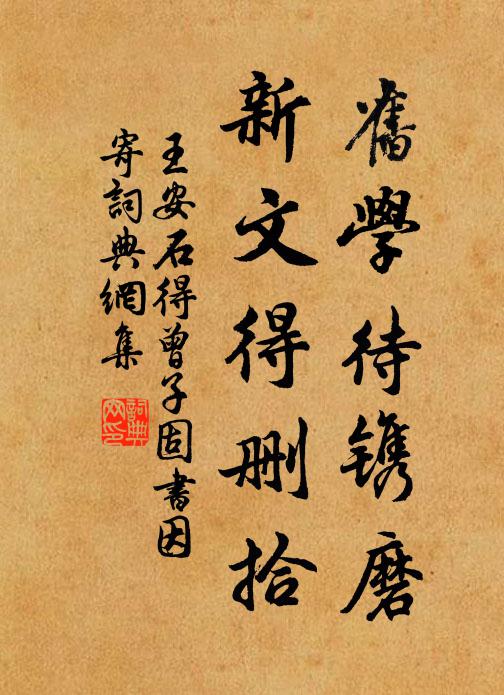 舊學待鐫磨
新文得删拾
王安石得曾子固書因
寄詞典網集
詞典網印